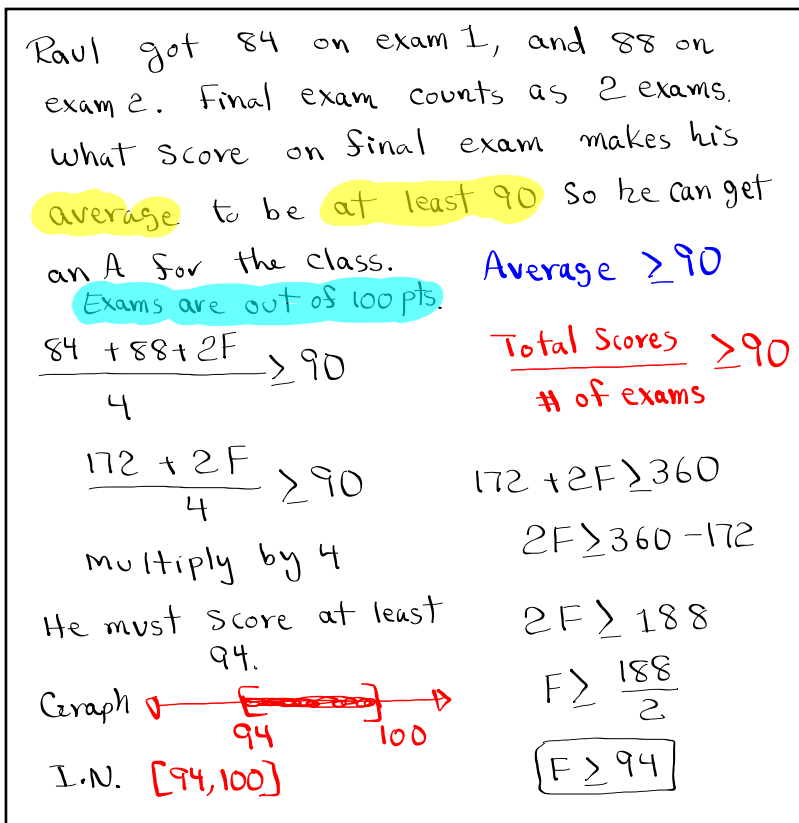 Raul got 84 on exam 1, and 88 on
exam 2. Final exam counts as 2 exams.
What score on final exam makes his
average to be at least 90 so he can get
an A for the class.
Exams are out of 100 pts.
Average ≥ 90
Total Scores / # of exams ≥ 90
84 + 88 + 2F / 4 ≥ 90
172 + 2F / 4 ≥ 90
Multiply by 4
172 + 2F ≥ 360
2F ≥ 360 - 172
2F ≥ 188
F ≥ 188 / 2
F ≥ 94
He must score at least
94.
Graph
94 100
I.N. [94,100]